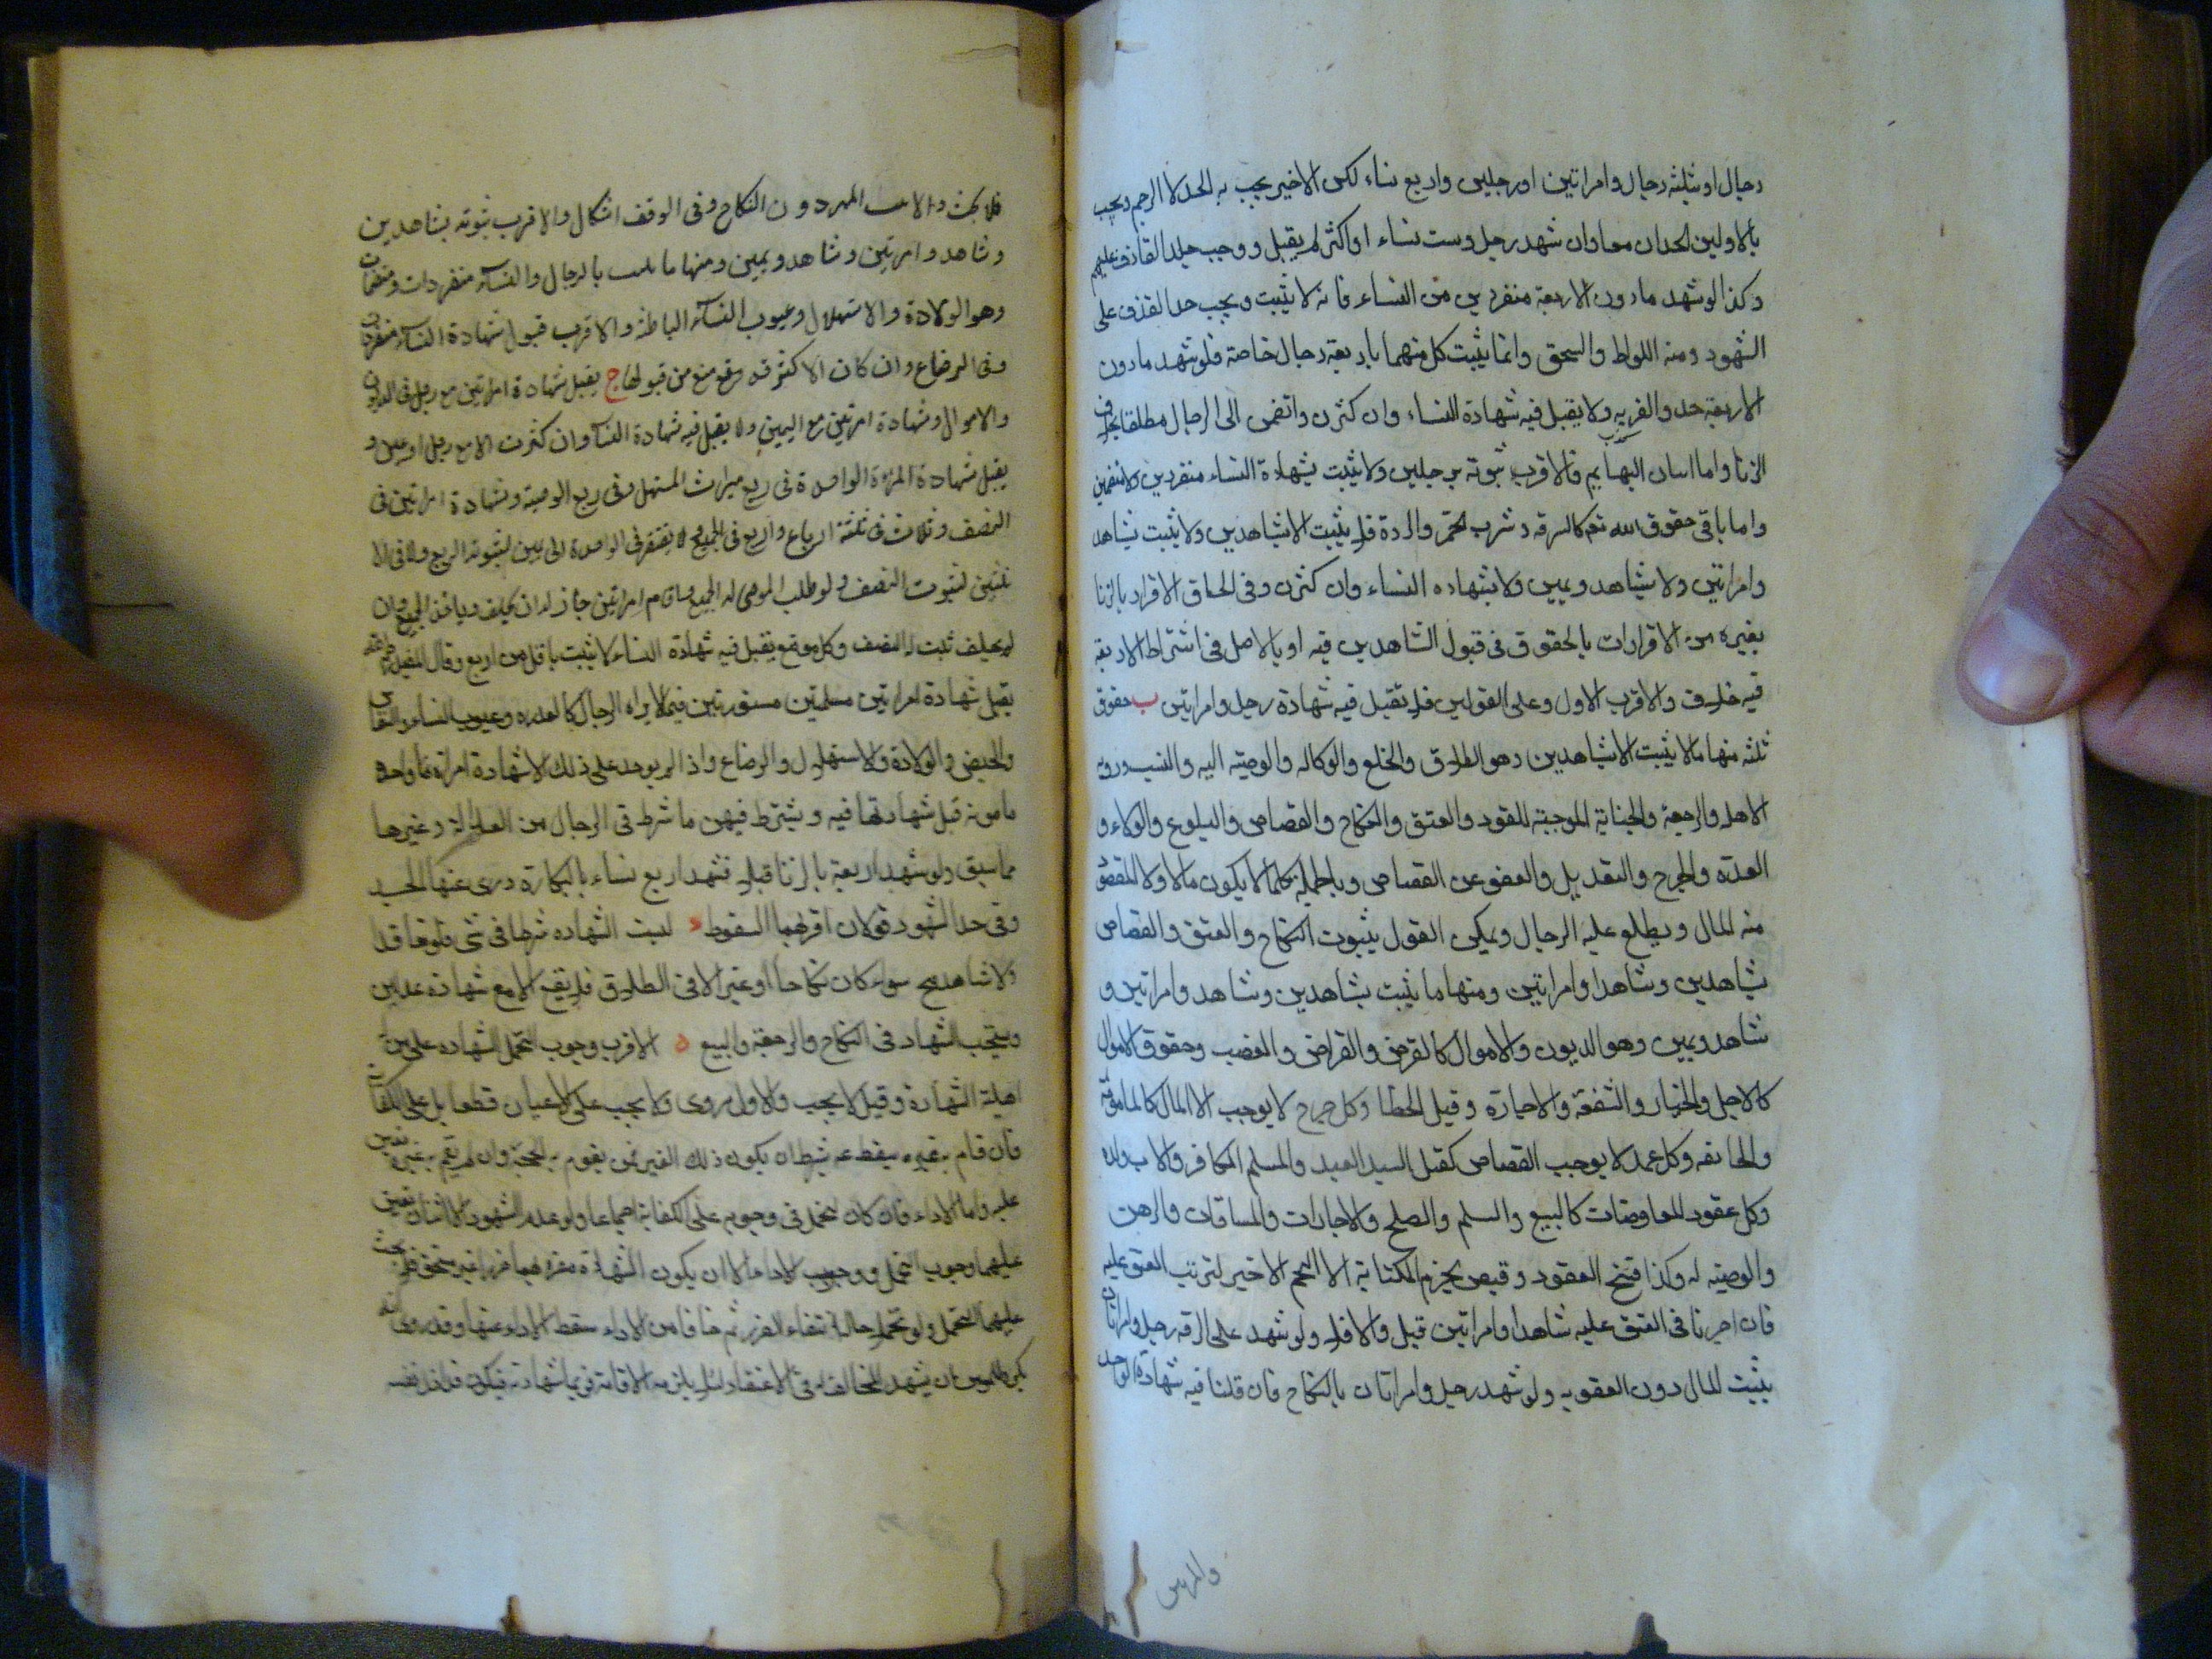 رجال او ثلثه رجال وامراتين او رجلين واربع نساء لكن الاخير يجب به الحد لا الرجم ويجب
بالاولين الحدان معا وان شهد رجل وست نساء او اكثر لم يقبل ووجب جلد القاذف عليهم
وكذا لو شهد ما دون الاربعة منفردين من النساء فانه لا يثبت ويجب حد القذف على
الشهود ومنه اللواط والسحق وانما يثبت كل منهما باربعة رجال خاصة فلو شهد ما دون
الاربعة حد والفريه ولا يقبل فيه شهادة النساء وان كثرن وانضمن الى الرجال مطلقا بخلاف
الزنا واما اتيان البهايم فالاقرب ثبوته برجلين ولا يثبت بشهادة النساء منفردين ولا منضمين
واما باقي حقوق الله تعم كالسرقه وشرب الخمر والردة فلا يثبت الا بشاهدين ولا يثبت بشاهد
وامراتين ولا بشاهد ويمين ولا بشهاده النساء وان كثرن وفى الحاق الاقرار بالزنا
بغيره من الاقرارات بالحقوق فى قبول الشاهدين فيه او بالاصل فى اشتراط الاربعة
فيه خلاف والاقرب الاول وعلى القولين فلا تقبل فيه شهادة رجل وامراتين ب حقوق
ثلثه منها ما لا يثبت الا بشاهدين وهو الطلاق والخلع والوكاله والوصية اليه والنسب ورويه
الاهله والرجعة والجناية الموجبة للقود والعتق والنكاح والقصاص والبلوغ والولاء و
العدة والجرح والتعديل والعفو عن القصاص وبالجملة كلما لا يكون مالا ولا المقصود
منه المال ويطلع عليه الرجال ويمكن القول بثبوت النكاح والعتق والقصاص
بشاهدين وشاهد وامراتين ومنها ما يثبت بشاهدين وشاهد وامراتين و
شاهد ويمين وهو الديون والاموال كالقرض والقراض والغصب وحقوق الاموال
كالاجل والخيار والشفعة والاجازة وقيل الخطا وكل جرح لا يوجب الا المال كالمامومة
والجايفه وكل عمد لا يوجب القصاص كقتل السيد العبد والمسلم الكافر والاب ولده
وكل عقود المعاوضات كالبيع والسلم والصلح والاجارات والمساقات والرهن
والوصية له وكذا فسخ العقود وقبض نجوم الكتابة الا النجم الاخير لترتب العتق عليه
فان اجرنا فى العتق عليه شاهدا وامراتين قبل والا فلا ولو شهد على السرقه رجل وامراتان
يثبت المال دون العقوبه ولو شهد رجل وامراتان بالنكاح فان قلنا فيه شهادة الواحد
والمراتين
فلا بحث والا ثبت المهر دون النكاح وفى الوقف اشكال والاقرب ثبوته بشاهدين
وشاهد وامرتين وشاهد ويمين ومنها ما يثبت بالرجال والنساء منفردات ومنضمات
وهو الولادة والاستهلال وعيوب النساء الباطنة والاقرب قبول شهادة النساء منفردات
وفى الرضاع وان كان الاكثر قد منع من قبولها ج يقبل شهادة امراتين مع رجل فى الديون
والاموال وشهادة امرتين مع اليمين ولا يقبل فيه شهادة النساء وان كثرت الا مع رجل او يمين و
يقبل شهادة المرءة الواحدة فى ربع ميراث المستهل وفى ربع الوصية وشهادة امراتين فى
النصف وثلاث فى ثلثة ارباع واربع فى الجميع ولا يفتقر فى الواحدة الى يمين لثبوت الربع ولا فى الا
ثنتين لثبوت النصف ولو طلب الموصى له الجميع واقام امراتين جاز له ان يحلف وياخذ الجميع وان
لم يحلف ثبت له النصف وكل موضع يقبل فيه شهادة النساء لا يثبت باقل من اربع وقال المفيد رحمه الله
يقبل شهادة امراتين مسلمتين مستورتين فيما لا يراه الرجال كالعذره وعيوب النساء والنفاس
والحيض والولادة والاستهلال والرضاع واذا لم يوجد على ذلك الا شهادة امراة واحدة
مامونه قبل شهادتها فيه ويشترط فيهن ما شرط فى الرجال من العدالة وغيرها
مما سبق ولو شهد اربعة بالزنا قبلا فشهد اربع نساء بالبكارة درى عنها الحد
وفى حد الشهود قولان اقربهما السقوط د ليست الشهاده شرطا فى شى فلو تعاقدا
ولا شاهد صح سواء كان نكاحا او غير الا فى الطلاق فلا يقع الا مع شهادة عدلين
ويستحب الشهاد فى النكاح والرجعة والبيع ه الاقرب وجوب التحمل الشهاده على من له
اهلية الشهادة وقيل لا يجب والاول مروى ولا يجب على الاعيان قطعا بل على الكفاية
فان قام به غيره سقط عنه بشرط ان يكون ذلك الغير ممن يقوم به الحجة وان لم يقم به غيره تعين
عليه واما الاداء فان كان تحمل فى وجوبه على الكفاية اجماعا ولو عدم الشهود الا اثنان تعين
عليهما وجوب التحمل ووجوب الاداء الا ان يكون الشهادة مضرة بهما ضررا غير مستحق فلا يجب
عليهما التحمل ولو تحملا حالة انتفاء الضرر ثم خافا من الاداء سقط الاداء عنهما وقد روى انه
يكره للمومن ان يشهد للمخالف له فى الاعتقاد لئلا يلزمه الاقامة فربما ردت شهادته فيكون قد اذل نفسه